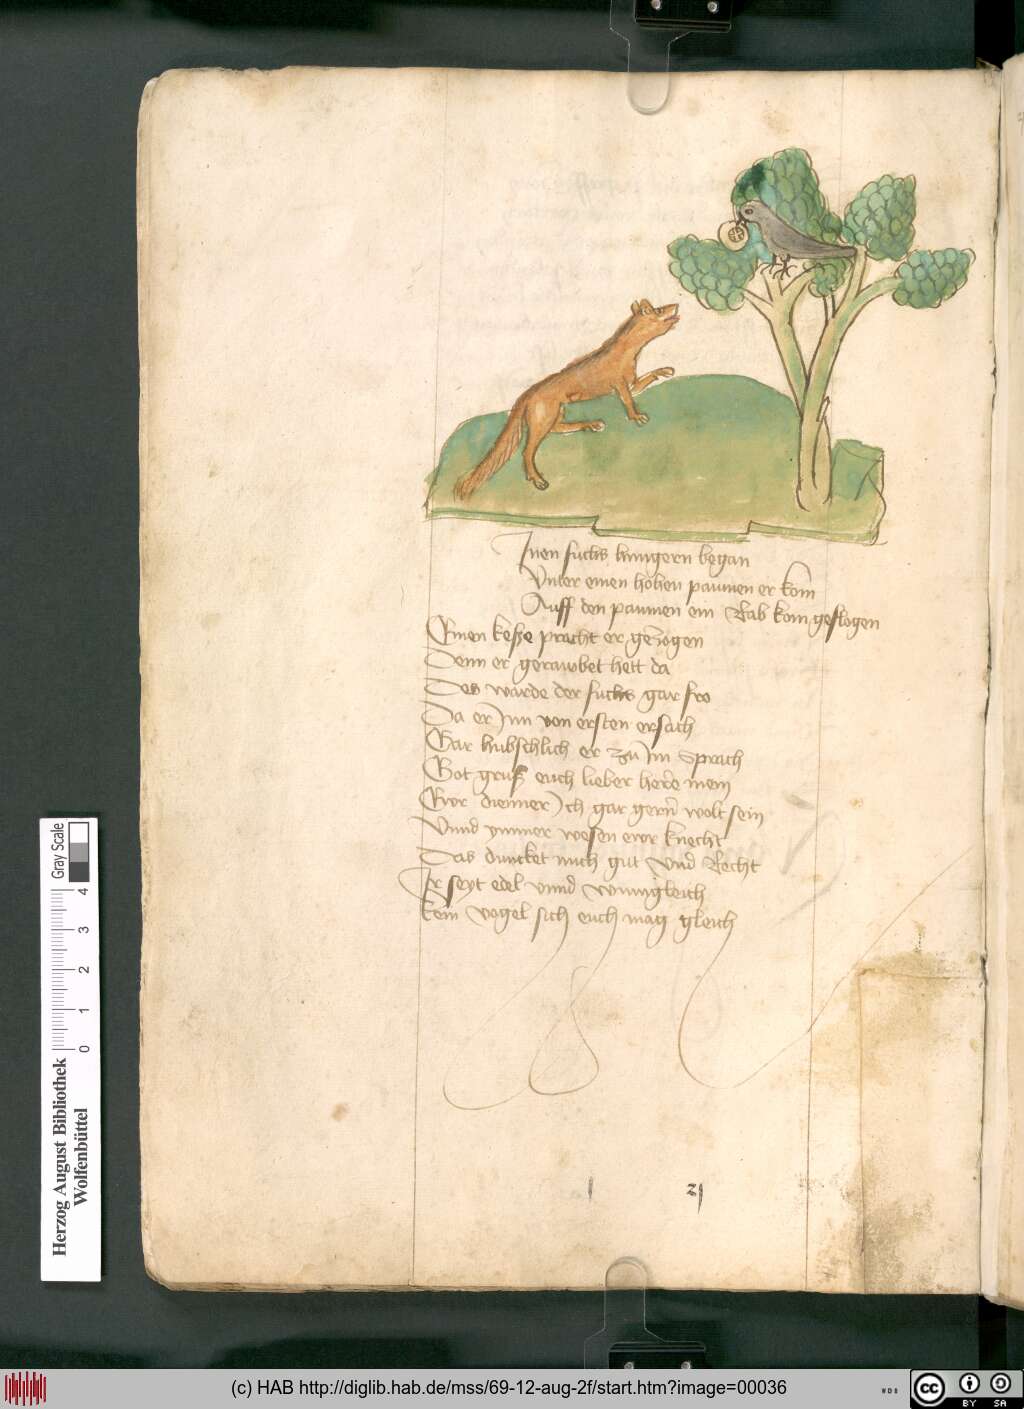 Inen fuchs hungern began
Vnter einen hohen paumen er kom
Auff den paumen ein Rab kom geflogen
Einen kesze pracht er gezogen
Denn er gerawbet hett da
Des warde der fuchs gar fro
Da er Inn von ersten ersach
Gar hubschlich er zu Im sprach
Got grus euch lieber here mein
Ewr dienner Ich gar gern wolt sein
Vnnd ymmer wesen ewr knecht
Das duncket mich gut vnd Recht
Ir seyt edel vnnd wunigleich
kein vogel sich euch mag gleich
Herzog August Bibliothek
Wolfenbüttel
0 1 2 3 4
Gray Scale
(c) HAB http://diglib.hab.de/mss/69-12-aug-2f/start.htm?image=00036
WDB
cc BY SA